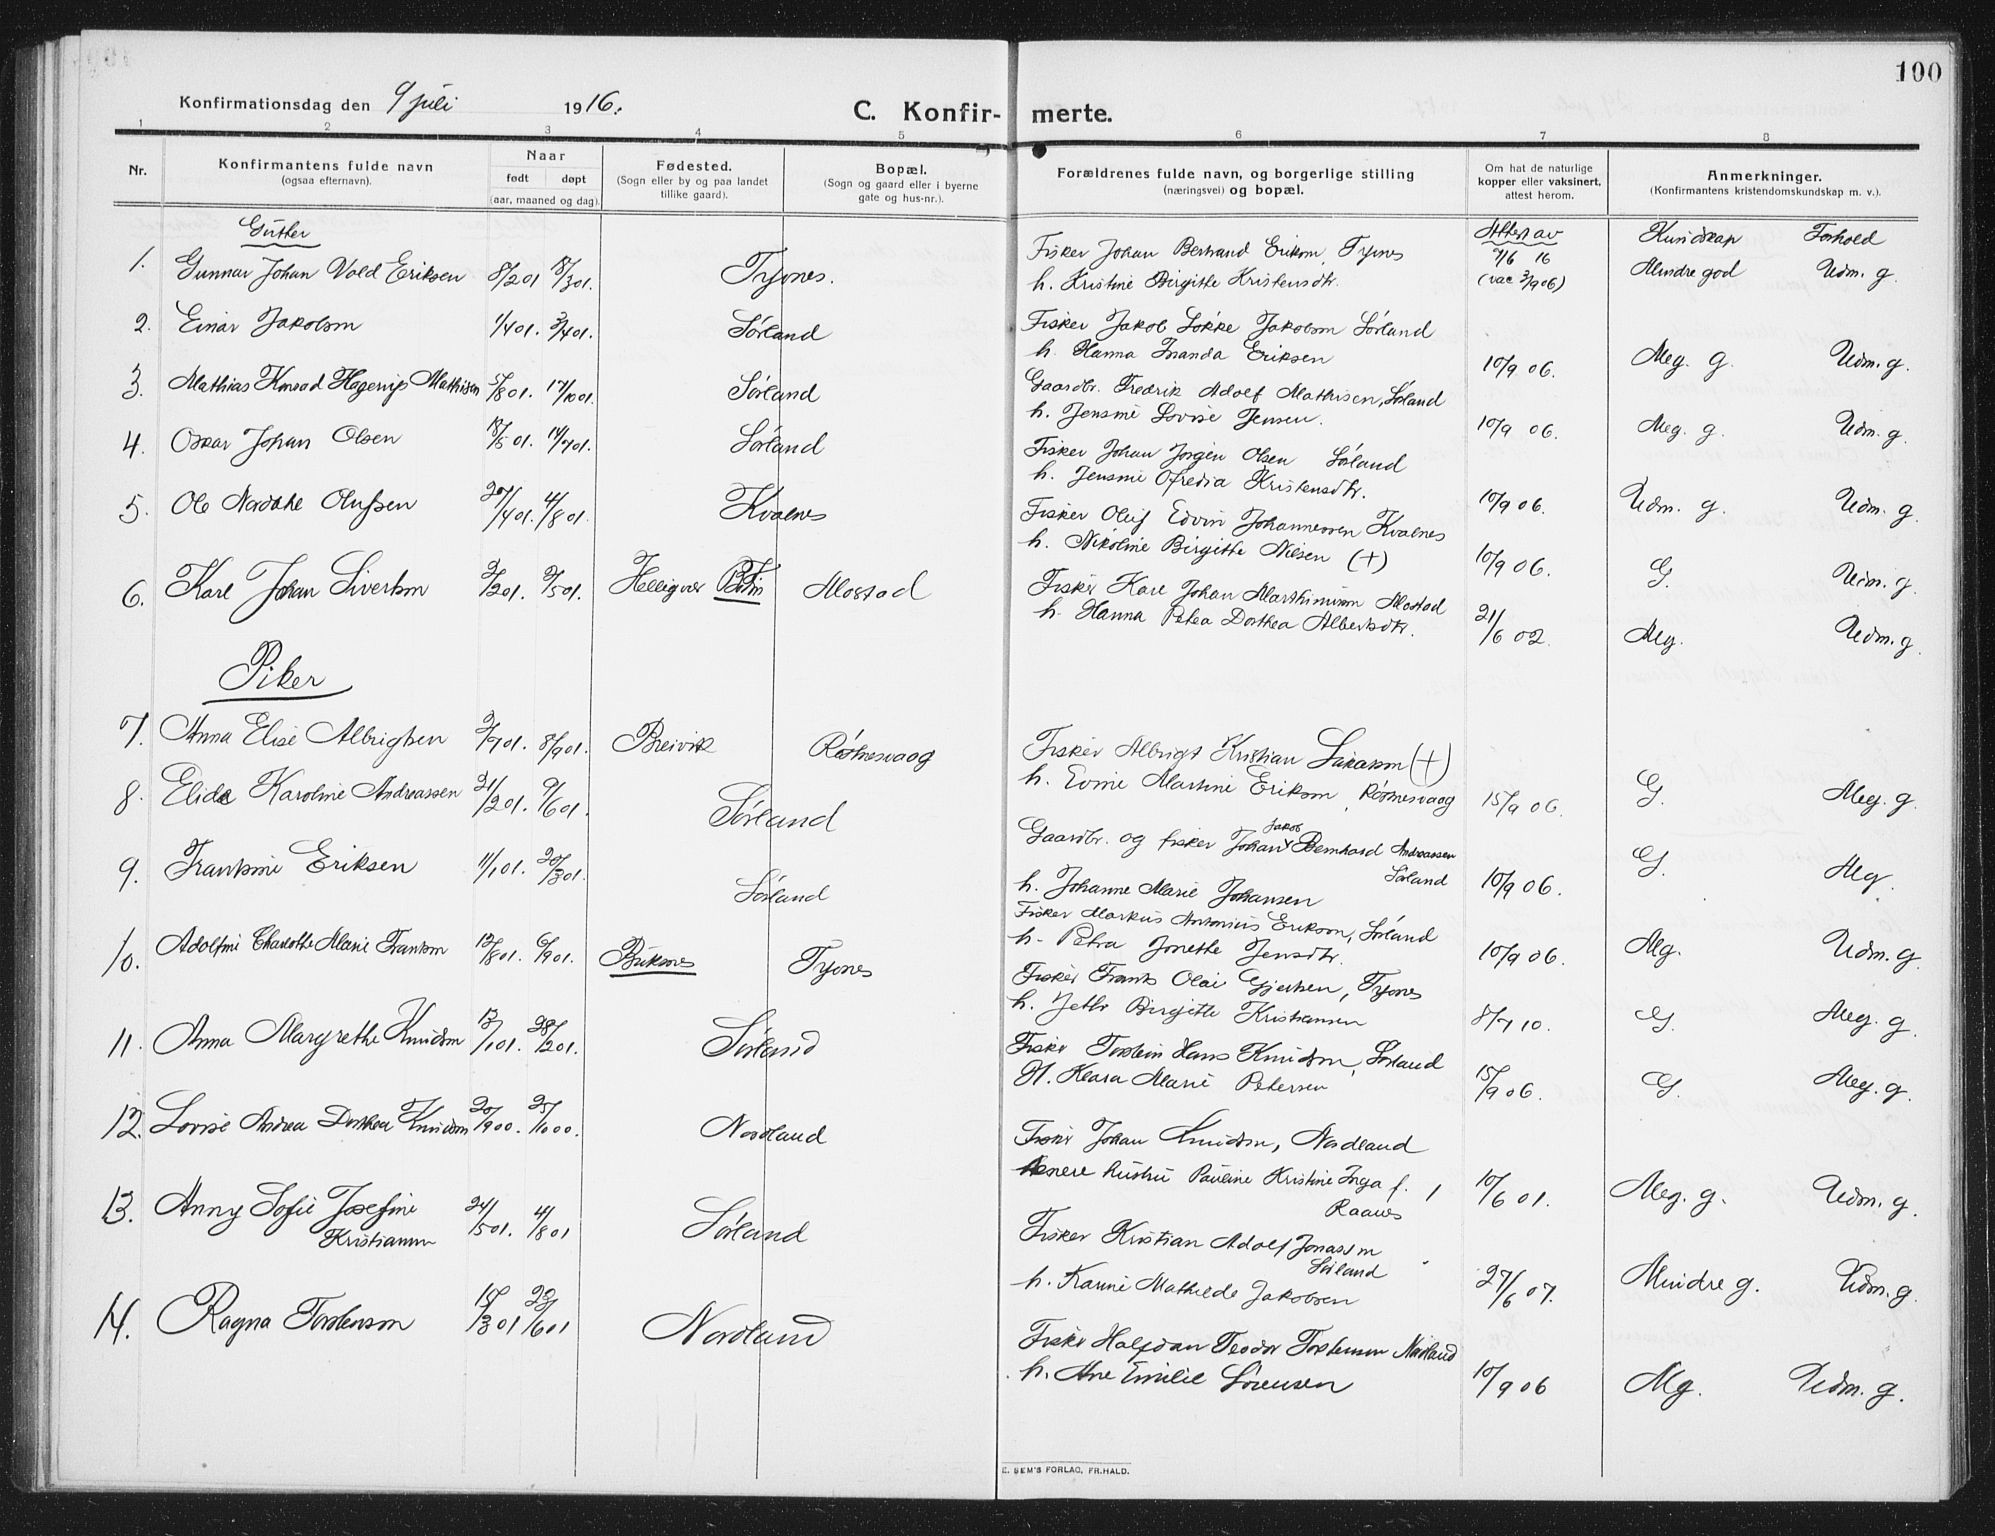 100
Konfirmationsdag den 9 juli 1916.
C. Konfir- merte.
1 2 3 4 5 6 7 8
Nr.
Konfirmantens fulde navn
(ogsaa efternavn).
Naar
født døpt
(aar, maaned og dag).
Fødested.
(Sogn eller by og paa landet
tillike gaard).
Bopæl.
(Sogn og gaard eller i byerne
gate og hus-nr.).
Forældrenes fulde navn, og borgerlige stilling
(næringsvei) og bopæl.
Om hat de naturlige
kopper eller vaksinert,
attest herom.
Anmerkninger.
(Konfirmantens kristendomskundskap m. v.).
Gutter
Attest av
Kundskap Forhold
1. Gunnar Johan Vold Eriksen 8/2 01 18/3 01. Tyvnes.
Fisker Johan Bertrand Eriksen, Tyvnes
h. Kristine Birgitte Kristensdtr.
7/6 16
(vac 3/9 06)
Mindre god Udm. g.
2. Einar Jakobsen 1/4 01. 3/4 01. Sørland
Fisker Jakob Løkke Jakobsen Sørland
h. Hanna Inanda Eriksen
10/9 06. Meg. g. Udm. g.
3. Mathias Konrad Hagerup Mathisen 5/8 01. 17/10 01. Sørland
Gaardbr. Fredrik Adolf Mathisen, Sørland
h. Jensine Lovise Jensen.
10/9 06. Meg. g. Udm. g.
4. Oskar Johan Olsen 18/5 01. 14/7 01. Sørland
Fisker Johan Jørgen Olsen Sørland
h. Jensine Ofredia Kristensdtr.
10/9 06. Udm. g. Udm. g.
5. Ole Nordahl Olufsen 27/4 01. 4/8 01. Kvalnes
Fisker Oluf Edvin Johannessen Kvalnes
h. Nikoline Birgitte Nilsen (+)
10/9 06. G. Udm. g.
6. Karl Johan Sivertsen 2/2 01. 2/5 01. Helligvær Bodin Mostad
Fisker Karl Johan Marthinussen Mostad
h. Hanna Petea Dorthea Albertsdtr.
21/6 02. Mg. Udm. g.
Piker
7. Anna Elise Albrigtsen 2/7 01. 8/9 01. Breivik Røsnesvaag
Fisker Albrigt Kristian (+)
h. Evine Martine Eriksen, Røsnesvaag
15/9 06. G. Meg. g.
8. Elida Karoline Andreassen 21/2 01. 9/6 01. Sørland
Gaardbr. og fisker Johan Jakob Bernhard Andreassen
Sørland
h. Johanne Marie Johansen
10/9 06. G. Mg.
9. Frantsine Eriksen 11/1 01. 20/3 01. Sørland
Fisker Markus Antonius Erikson, Sørland
h. Petra Jonette Jensdtr.
10/9 06. Mg. Udm. g.
10. Adolfine Charlotte Marie Frantsen 12/8 01. 6/9 01. Buksnes Tyvnes
Fisker Frants Olai Gjertsen, Tyvnes
h. Birgitte Kristiansen
8/7 10. G. Meg. g.
11. Anna Margrethe Knudsen 13/1 01. 28/2 01. Sørland
Fisker Torstein Hans Knudsen, Sørland
H. Klara Marie Petersen
15/9 06. G. Meg. g.
12. Lovise Andrea Dorthea Knudsen 20/9 00. 25/10 00. Nordland
Fisker Johan Knudsen, Nordland
senere hustru Pauline Kristine Inga f.
Raanes
10/6 01. Meg. g. Udm. g.
13. Anny Sofie Josefine
Kristiansen 24/5 01. 4/8 01 Sørland
Fisker Kristian Adolf Jonassen
Sørland
h. Karine Mathilde Jakobsen
27/6 07. Mindre g. Udm. g.
14. Ragna Torstensen 15/3 01 29/6 01 Nordland
Fisker Halfdan Teodor Torstensen Nordland
h. Ane Emilie Sørensen
10/9 06 Mg. Udm. g.
E. SEM'S FORLAG, FR.HALD.